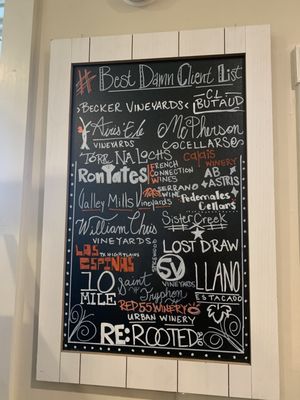 # Best Damn Client List
Becker Vineyards
C.L. Butaud
Airis'Ele Vineyards
McPherson Cellars
Tork Na Lochs
Calais Winery
Ron Yates
French Connection Wines
AB Astris
Serrano Wine
Pedernales Cellars
Valley Mills Vineyards
William Chris Vineyards
Sister Creek
Las Espinas
TX High Plains
Lost Draw
Vineyards
Llano Estacado
10 Mile
Saint Tryphon
Red 55 Winery
Urban Winery
RE:Rooted